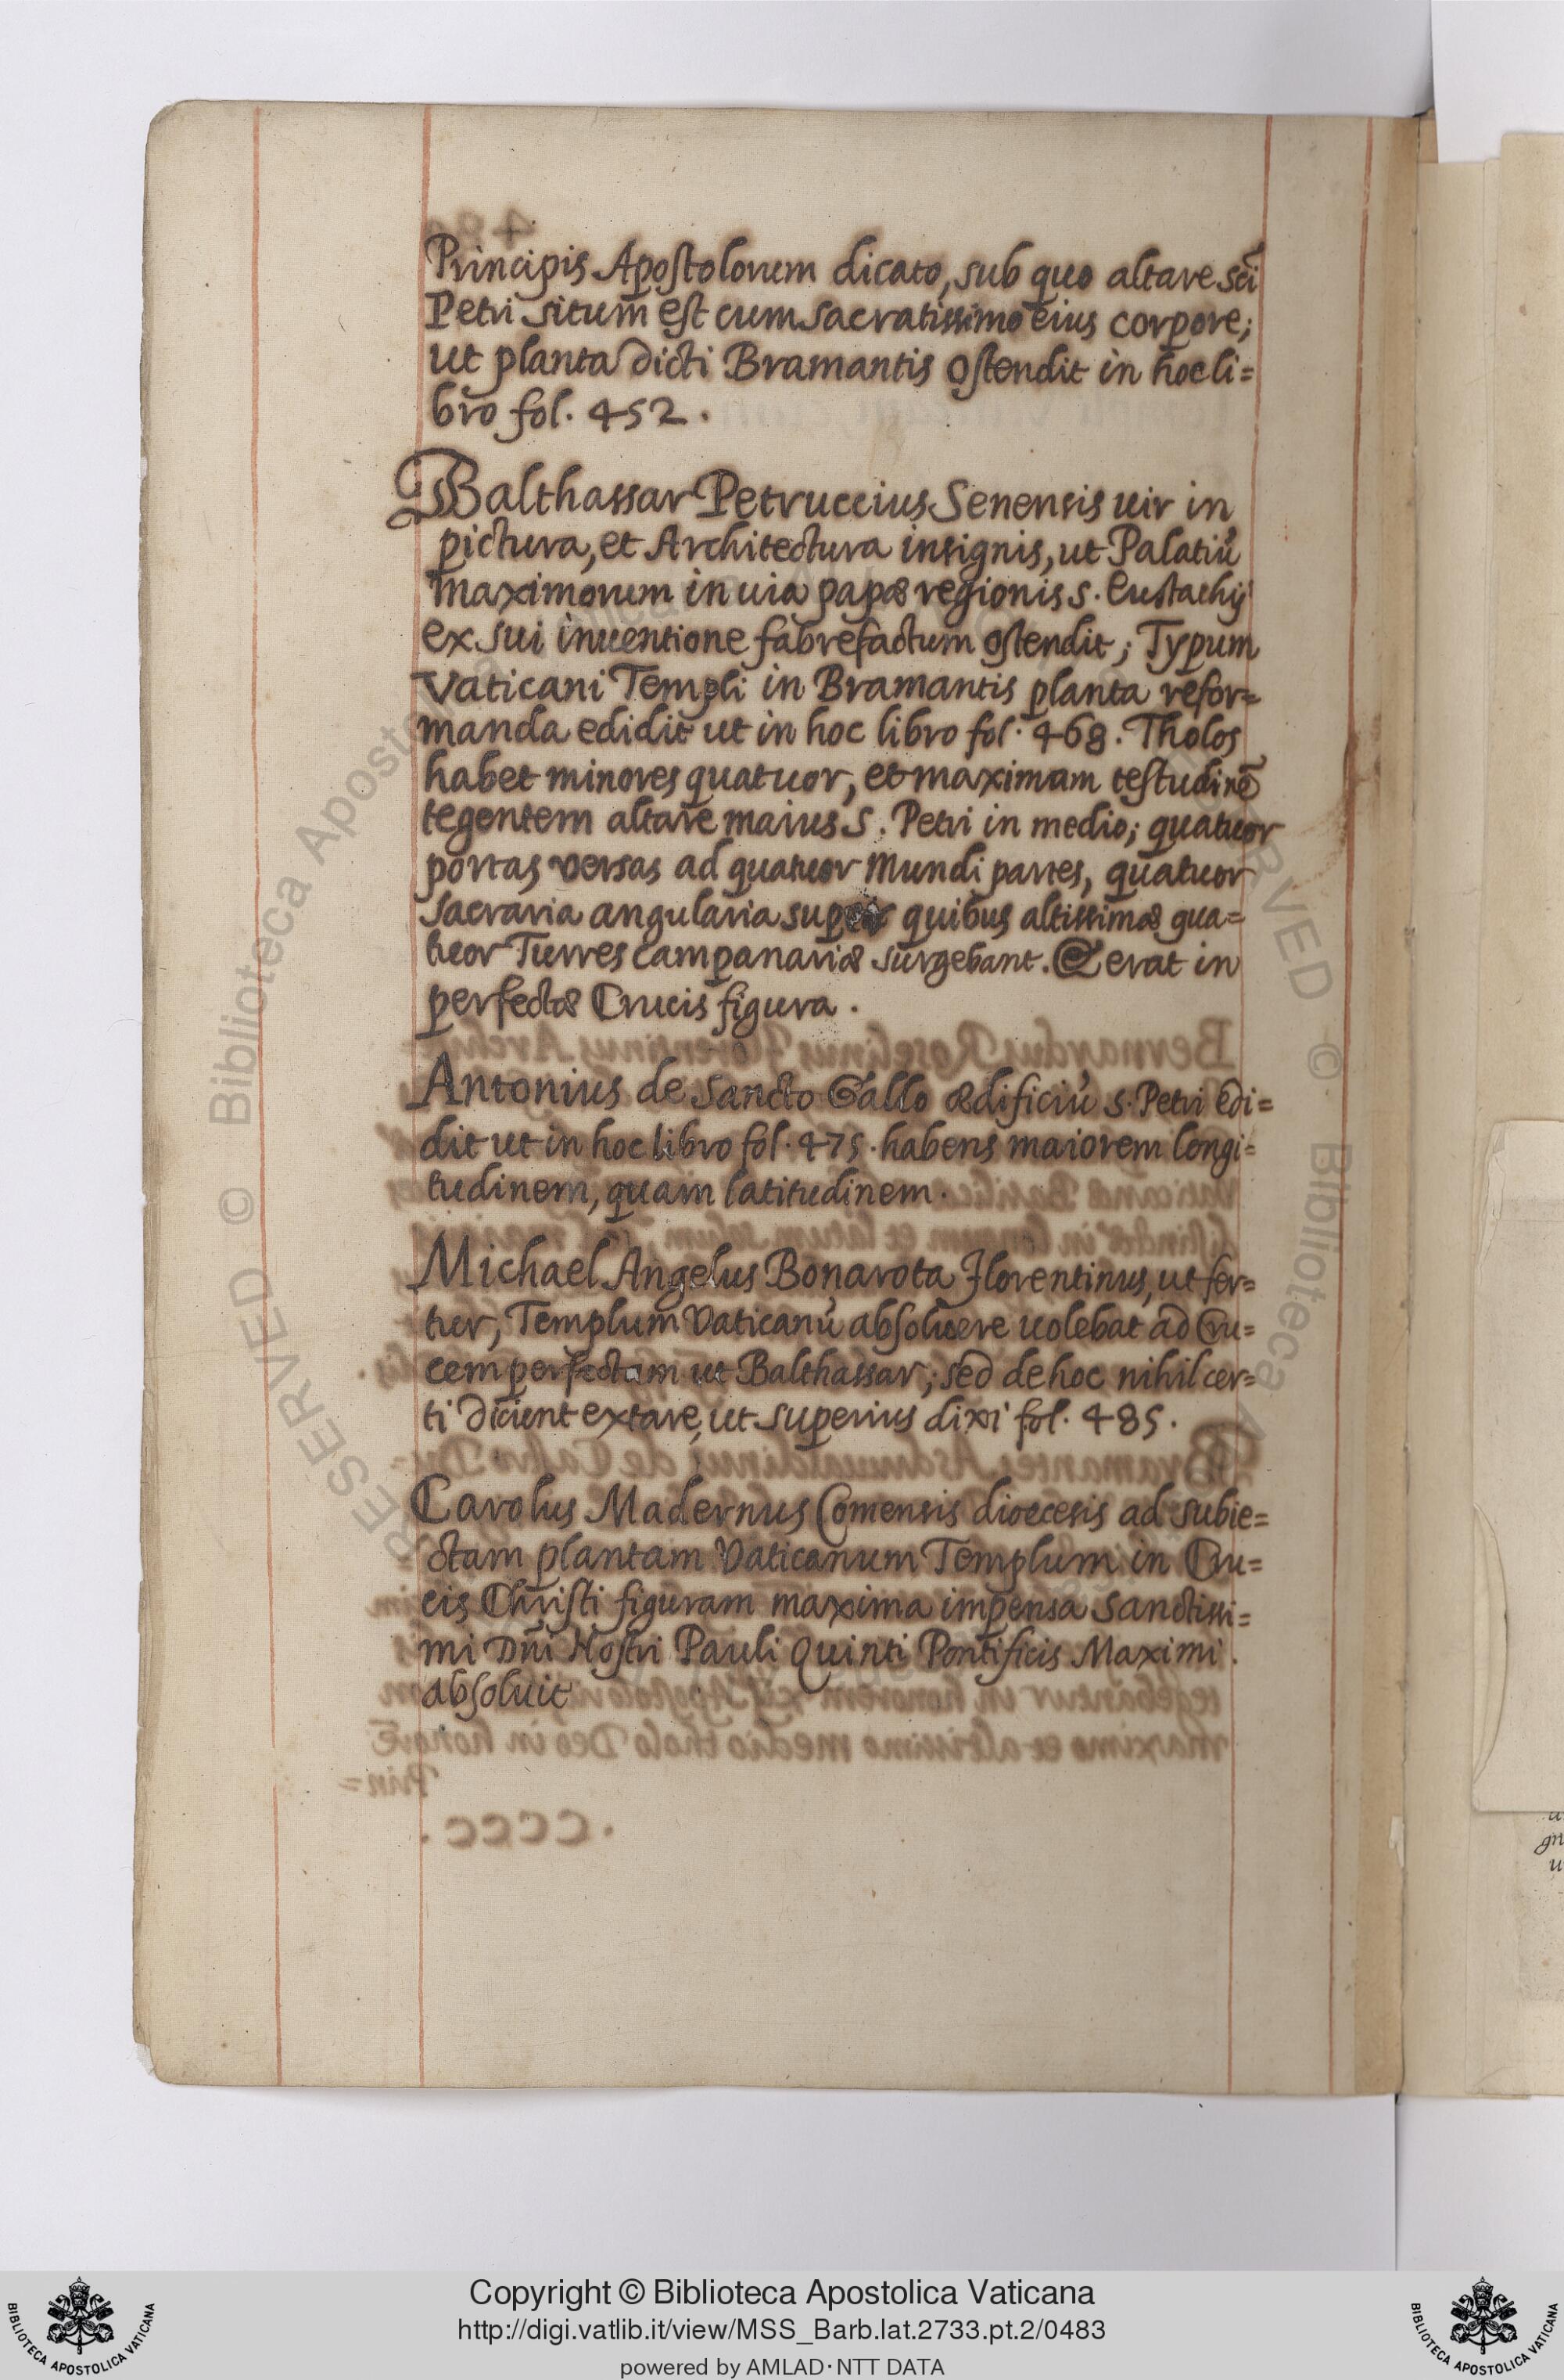 Principis Apostolorum dicato, sub quo altare sc̃i
Petri situm est cum sacratissimo eius corpore;
ut planta dicti Bramantis ostendit in hoc li=
bro fol. 452.
Balthassar Petruccius Senensis uir in
pictura, et Architectura insignis, ut Palatiũ
Maximorum in uia papæ regionis s. Eustachij
ex sui inuentione fabrefactum ostendit; Typum
Vaticani Templi in Bramantis planta refor=
manda edidit ut in hoc libro fol. 468. Tholos
habet minores quatuor, et maximam testudinẽ
tegentem altare maius S. Petri in medio; quatuor
portas versas ad quatuor Mundi partes, quatuor
sacraria angularia super quibus altissimæ qua=
tuor Turres campanariæ surgebant. Et erat in
perfectæ Crucis figura.
Antonius de Sancto Gallo ædificiũ s. Petri edi=
dit ut in hoc libro fol. 475. habens maiorem longi=
tudinem, quam latitudinem.
Michael Angelus Bonarota Florentinus, ut fer=
tur, Templum Vaticanũ absoluere uolebat ad Cru=
cem perfectam ut Balthassar; sed de hoc nihil cer=
ti dicunt extare, ut superius dixi fol. 485.
Carolus Madernus Comensis diœcesis ad subie=
ctam plantam Vaticanum Templum in Cru=
cis Christi figuram maxima impensa Sanctissi=
mi Dñi Nostri Pauli Quinti Pontificis Maximi.
absoluit
Copyright © Biblioteca Apostolica Vaticana
http://digi.vatlib.it/view/MSS_Barb.lat.2733.pt.2/0483
powered by AMLAD·NTT DATA
BIBLIOTECA APOSTOLICA VATICANA
BIBLIOTECA APOSTOLICA VATICANA